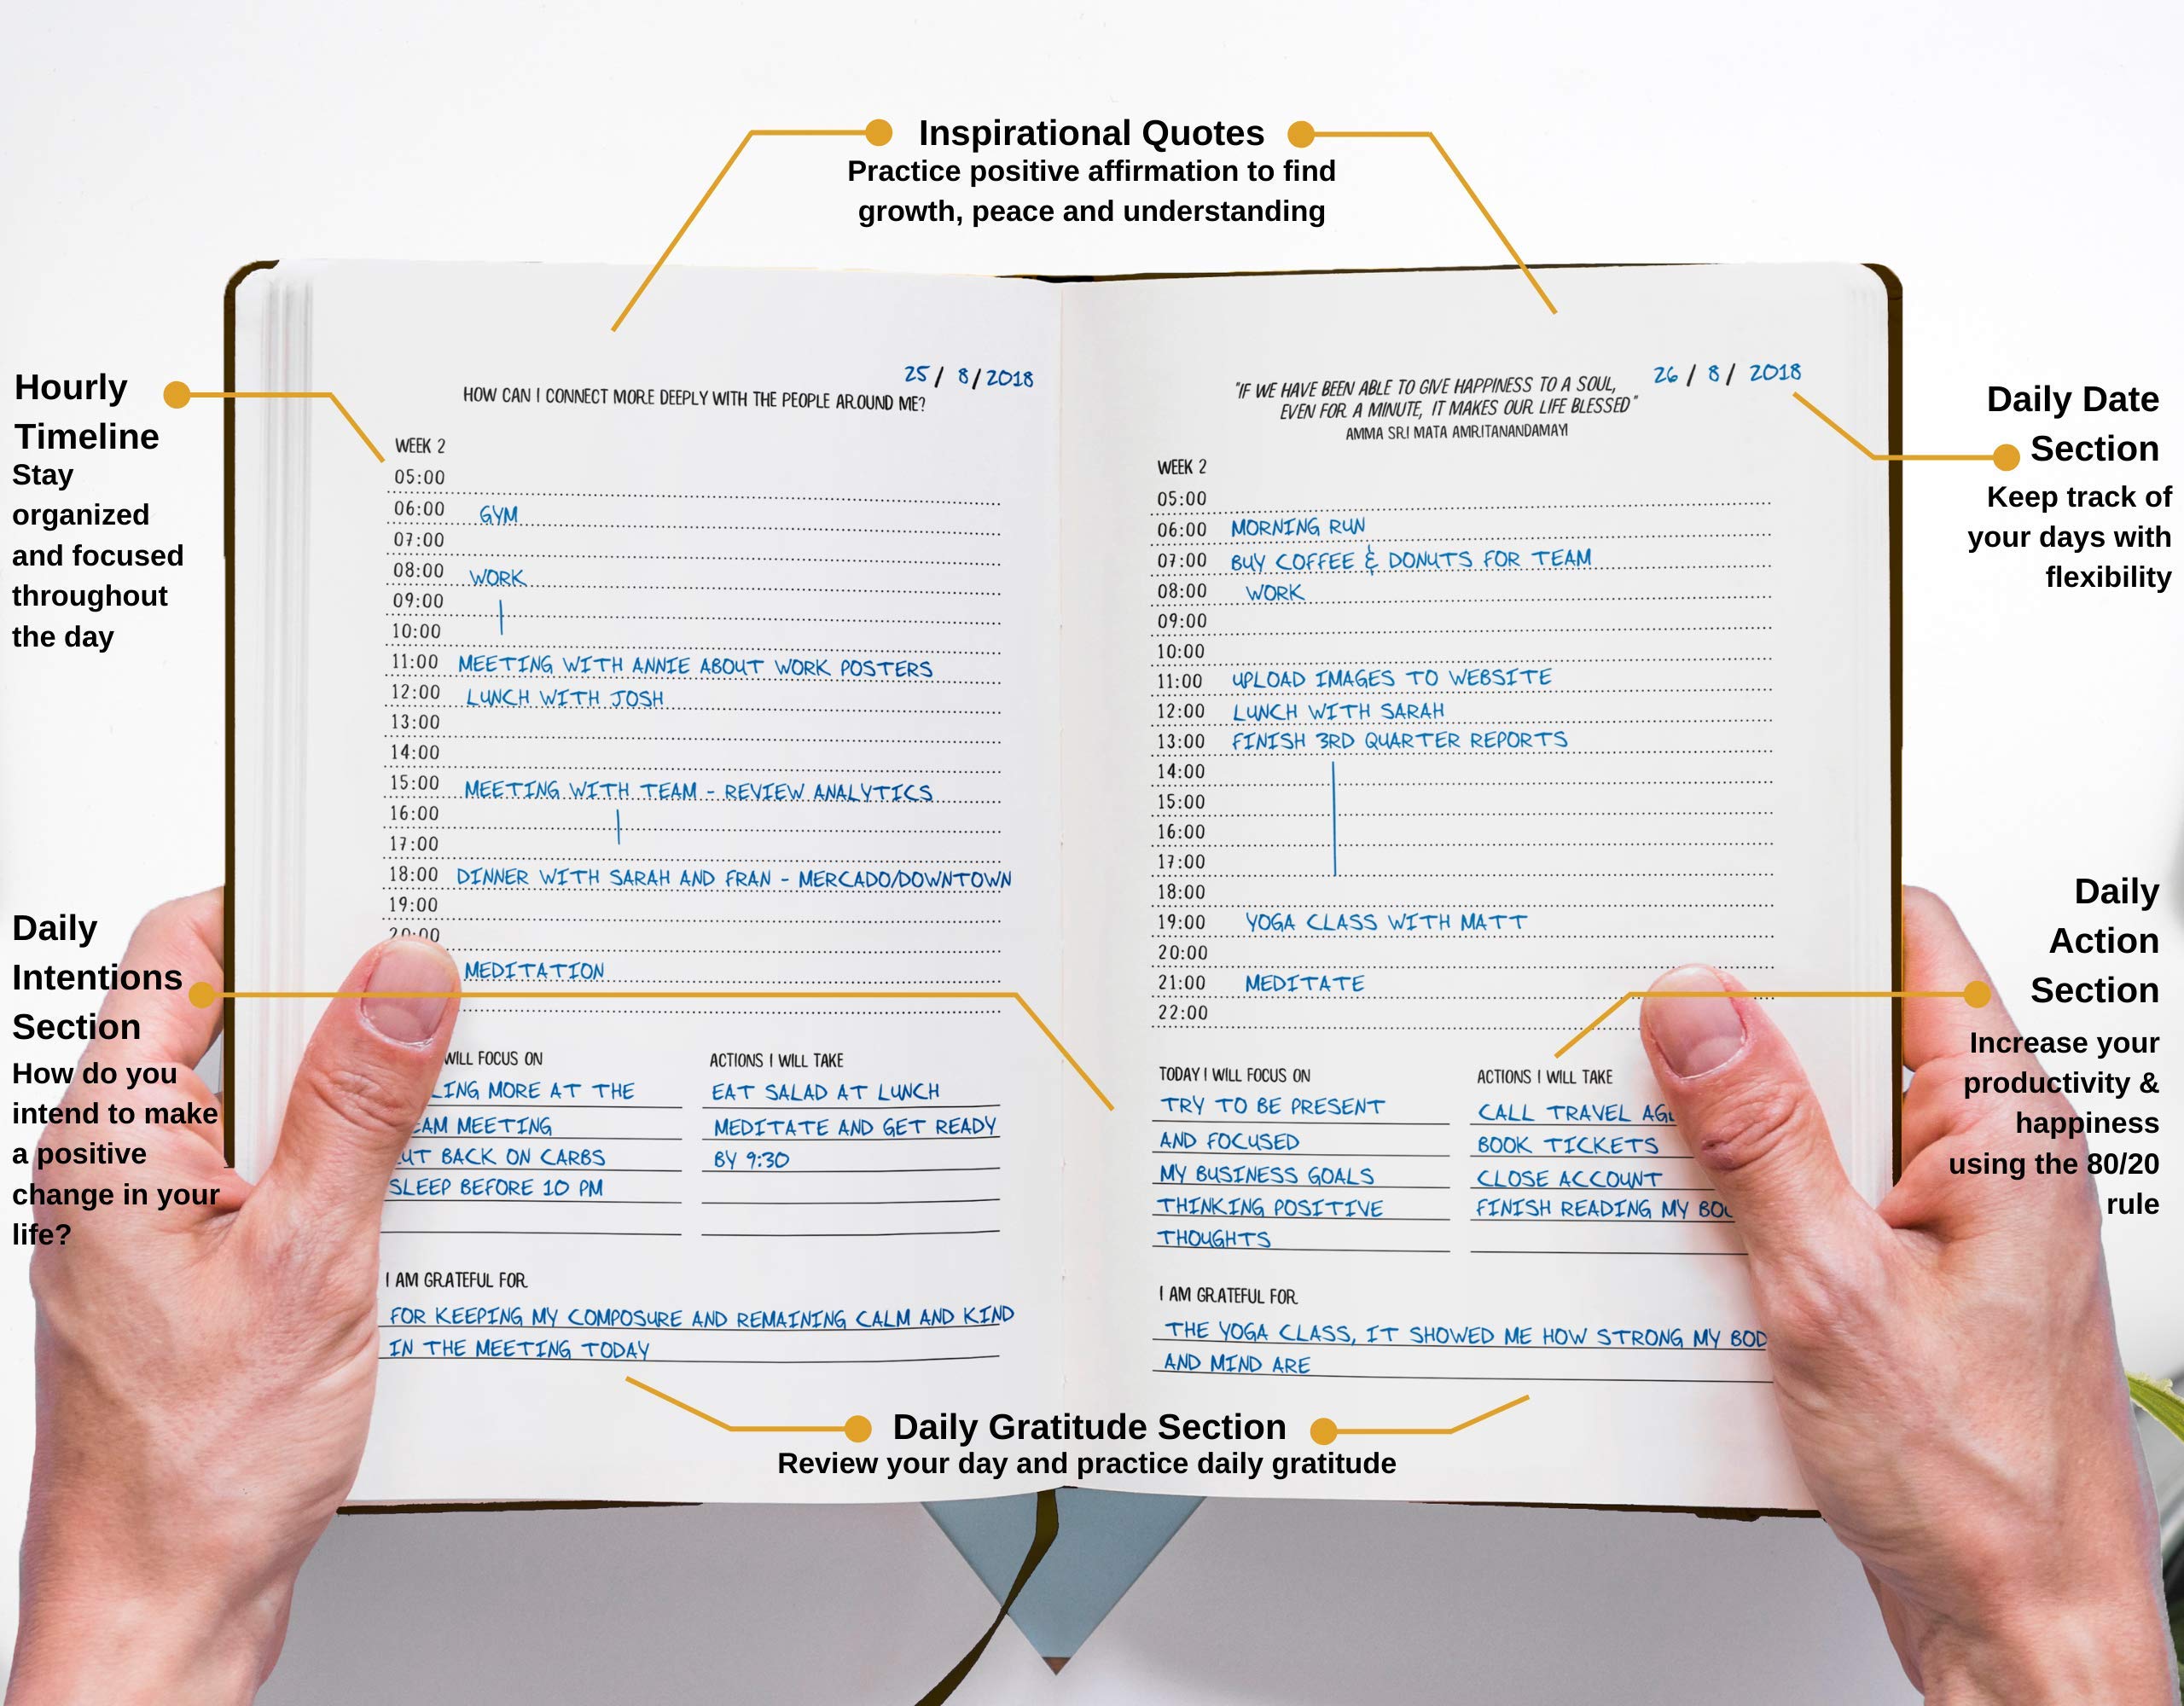 Inspirational Quotes
Practice positive affirmation to find
growth, peace and understanding
Hourly
Timeline
Stay
organized
and focused
throughout
the day
Daily
Intentions
Section
How do you
intend to make
a positive
change in your
life?
25/ 8/2018
HOW CAN I CONNECT MORE DEEPLY WITH THE PEOPLE AROUND ME?
WEEK 2
05:00
06:00 GYM
07:00
08:00 WORK
09:00
10:00
11:00 MEETING WITH ANNIE ABOUT WORK POSTERS
12:00 LUNCH WITH JOSH
13:00
14:00
15:00 MEETING WITH TEAM - REVIEW ANALYTICS
16:00
17:00
18:00 DINNER WITH SARAH AND FRAN - MERCADO/DOWNTOWN
19:00
20:00
MEDITATION
WILL FOCUS ON
MORE AT THE
MEETING
BACK ON CARBS
SLEEP BEFORE 10 PM
ACTIONS I WILL TAKE
EAT SALAD AT LUNCH
MEDITATE AND GET READY
BY 9:30
I AM GRATEFUL FOR
FOR KEEPING MY COMPOSURE AND REMAINING CALM AND KIND
IN THE MEETING TODAY
26 / 8 / 2018
"IF WE HAVE BEEN ABLE TO GIVE HAPPINESS TO A SOUL,
EVEN FOR A MINUTE, IT MAKES OUR LIFE BLESSED"
AMMA SRI MATA AMRITANANDAMAYI
WEEK 2
05:00
06:00 MORNING RUN
07:00 BUY COFFEE & DONUTS FOR TEAM
08:00 WORK
09:00
10:00
11:00 UPLOAD IMAGES TO WEBSITE
12:00 LUNCH WITH SARAH
13:00 FINISH 3RD QUARTER REPORTS
14:00
15:00
16:00
17:00
18:00
19:00 YOGA CLASS WITH MATT
20:00
21:00 MEDITATE
22:00
TODAY I WILL FOCUS ON
TRY TO BE PRESENT
AND FOCUSED
MY BUSINESS GOALS
THINKING POSITIVE
THOUGHTS
ACTIONS I WILL TAKE
CALL TRAVEL
BOOK TICKETS
CLOSE ACCOUNT
FINISH READING MY
I AM GRATEFUL FOR
THE YOGA CLASS, IT SHOWED ME HOW STRONG MY
AND MIND ARE
Daily Date
Section
Keep track of
your days with
flexibility
Daily
Action
Section
Increase your
productivity &
happiness
using the 80/20
rule
Daily Gratitude Section
Review your day and practice daily gratitude